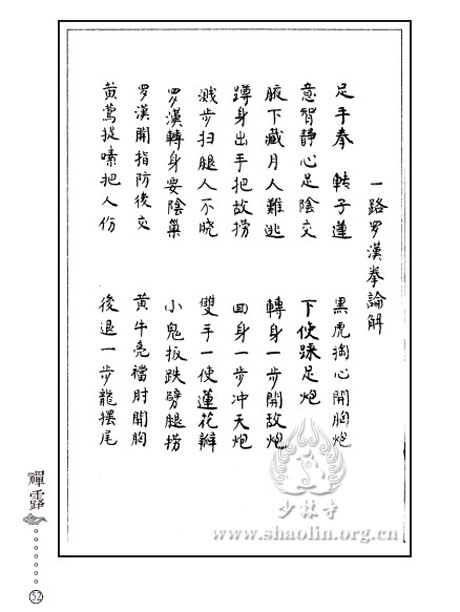 一路罗漢拳論解
足手奉 転子蓮 黑虎掏心開胸炮
意智静心足陰交 下使踩足炮
腋下藏月人難逃 轉身一步開敌炮
蹲身出手把敌捞 回身一步冲天炮
溅步扫腿人不晓 雙手一使蓮花瓣
罗漢轉身要陰巢 小鬼扳跌劈腿捞
罗漢開指防後交 黄牛亮襠肘開胸
黄莺捉嗉把人伤 後退一步龍擺尾
禪露
52
少林寺
www.shaolin.org.cn